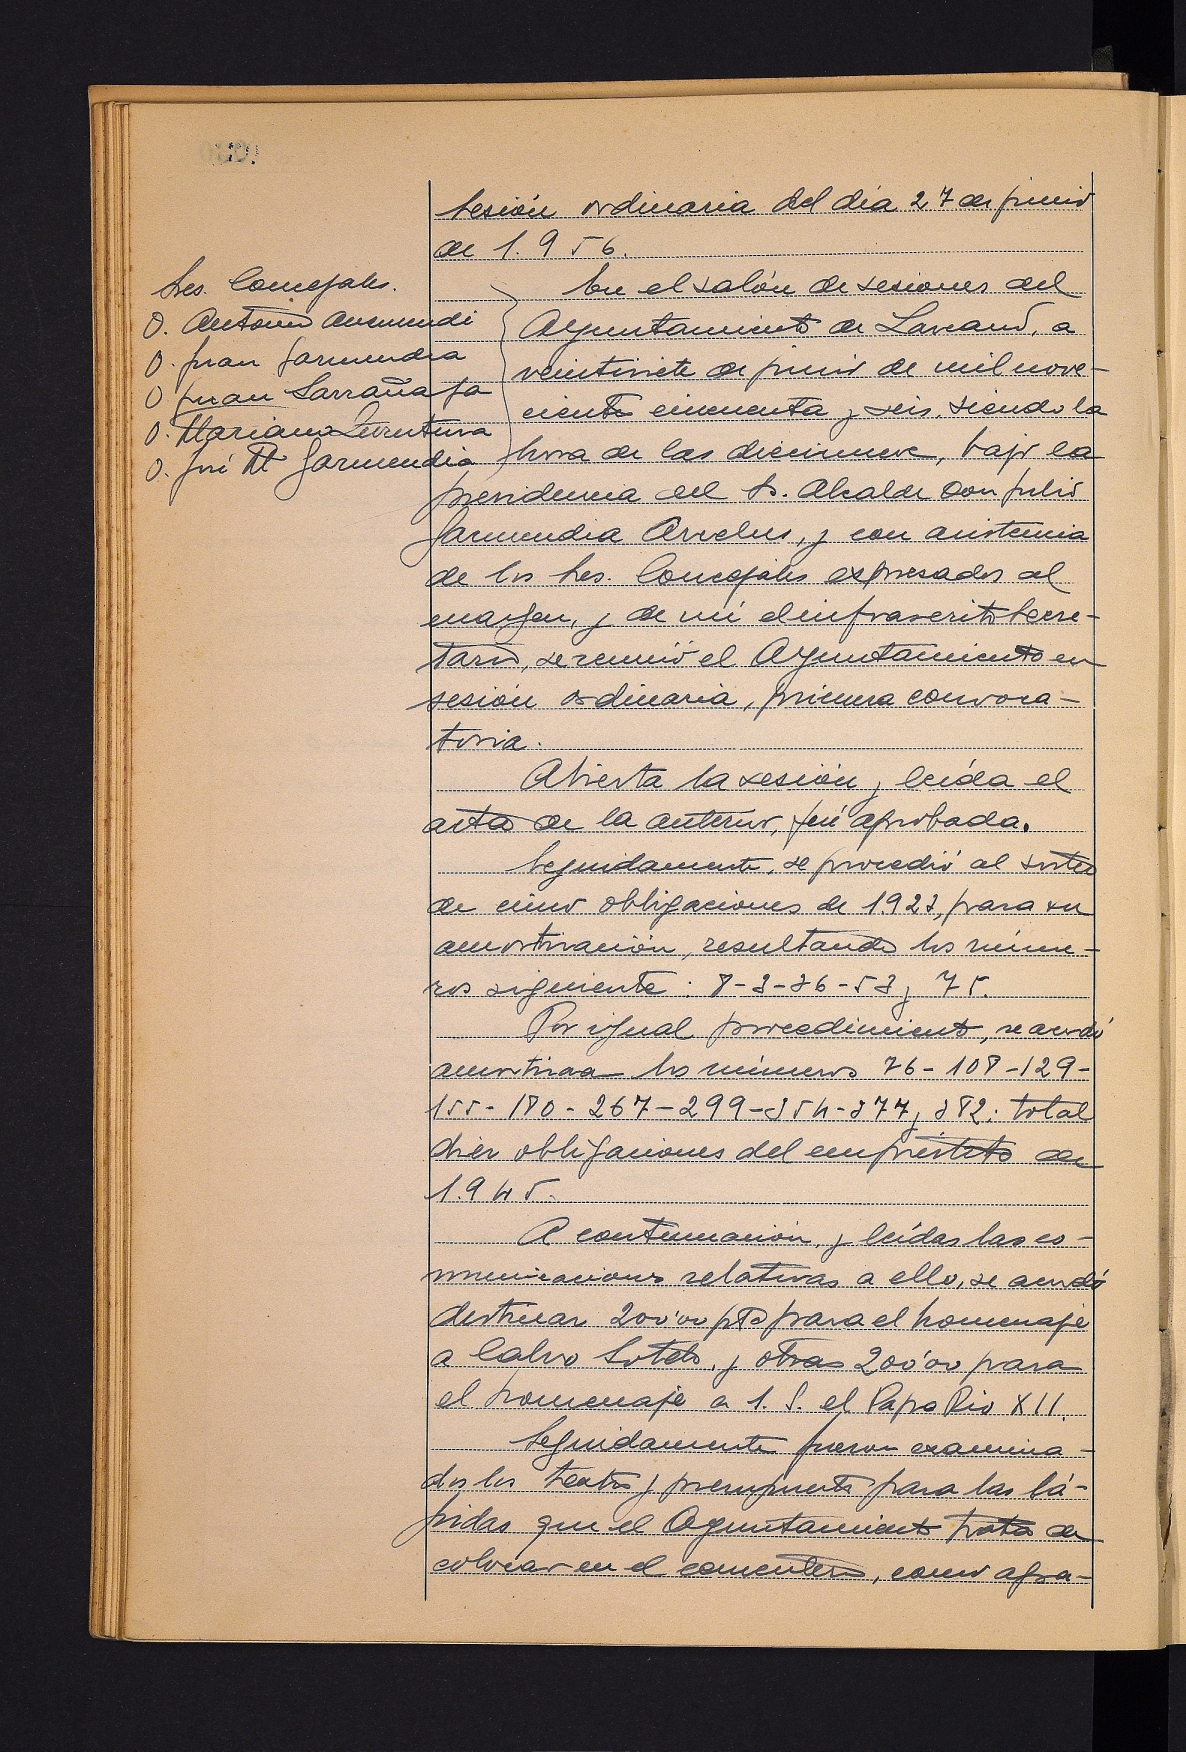 Sesión ordinaria del día 27 de junio
de 1.956.
Sres. Concejales.
D. Antonio Auzmendi
D. Juan Garmendia
D. Juan Larrañaga
D. Mariano
D. José Mª Garmendia
En el salón de sesiones del
Ayuntamiento de Lazcano, a
veintisiete de junio de mil nove-
cientos cincuenta y seis, siendo la
hora de las diecinueve, bajo la
presidencia del Sr. Alcalde Don Julio
Garmendia Arvelus, y con asistencia
de los Sres. Concejales expresados al
margen, y de mí el infrascrito Secre-
tario, se reunió el Ayuntamiento en
sesión ordinaria, primera convoca-
toria.
Abierta la sesión y leída el
acta de la anterior, fué aprobada.
Seguidamente, se procedió al sorteo
de cinco obligaciones de 1923, para su
amortización, resultando los núme-
ros siguiente: 8-3-36-53 y 75.
Por igual procedimiento, se acordó
amortizar los números 76-108-129-
155-180-267-299-354-377 y 382: total
diez obligaciones del empréstito de
1.945.
A continuación, y leídas las co-
municaciones relativas a ello, se acordó
destinar 200'00 pts para el homenaje
a Calvo Sotelo, y otras 200'00 para
el homenaje a S. S. el Papa Pio XII.
Seguidamente fueron examina-
dos los textos y presupuesto para las lá-
pidas que el Ayuntamiento trata de
colocar en el cementerio, como agra-